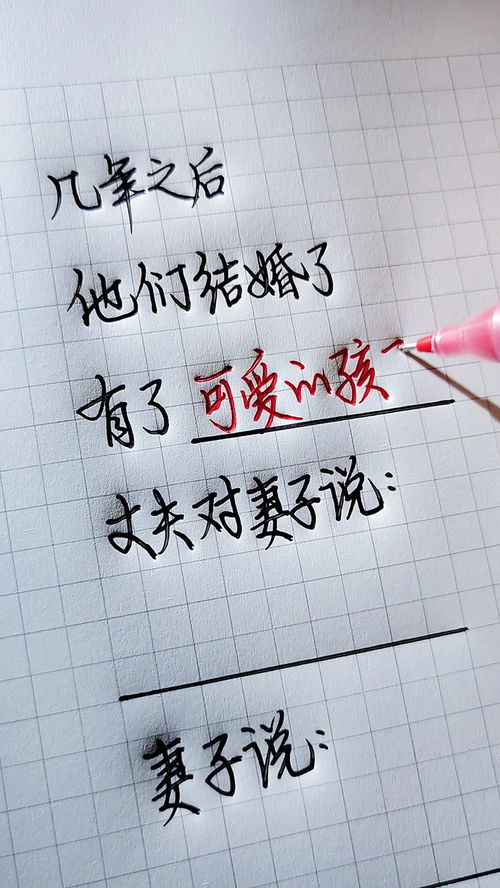 几年之后
他们结婚了
有了可爱的孩
丈夫对妻子说:
妻子说: